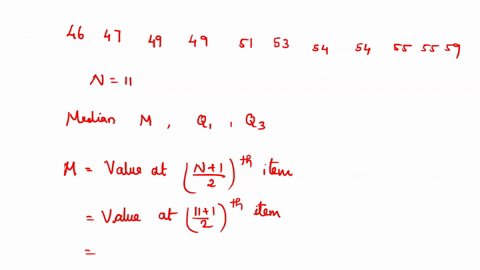 46 47 49 49 51 53 54 54 55 55 59
N = 11
Median M , Q₁ , Q₃
M = Value at (N+1/2)^th item
= Value at (11+1/2)^th item
=